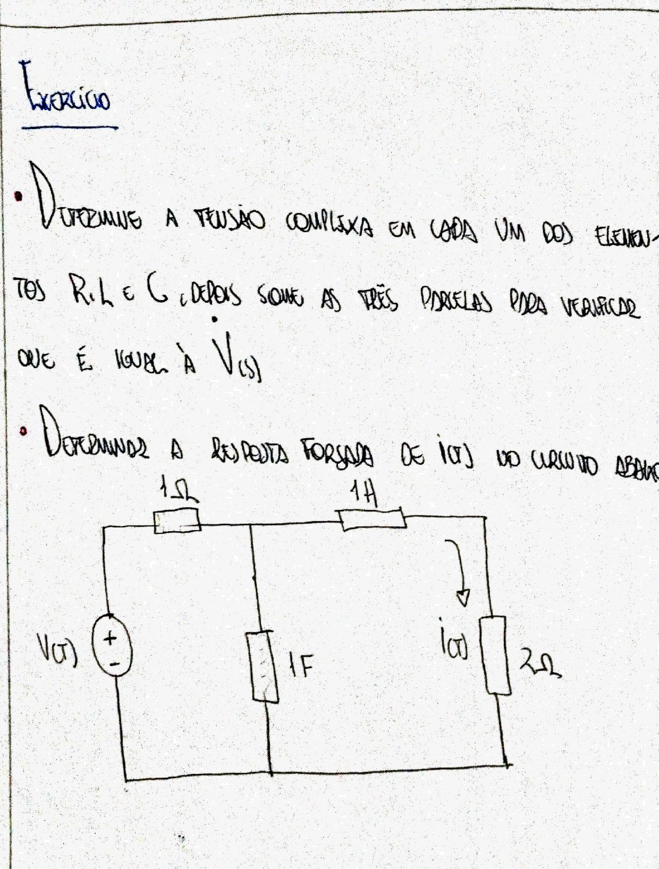 EXERCÍCIO
• DETERMINE A TENSÃO COMPLEXA EM CADA UM DOS ELEMEN-
TOS R, L E C, DEPOIS SOME AS TRÊS PARCELAS PARA VERIFICAR
QUE É IGUAL À V̇(S)
• DETERMINAR A RESPOSTA FORÇADA DE i(T) DO CIRCUITO ABAIXO
1Ω 1H
V(T) + - 1F i(T) 2Ω